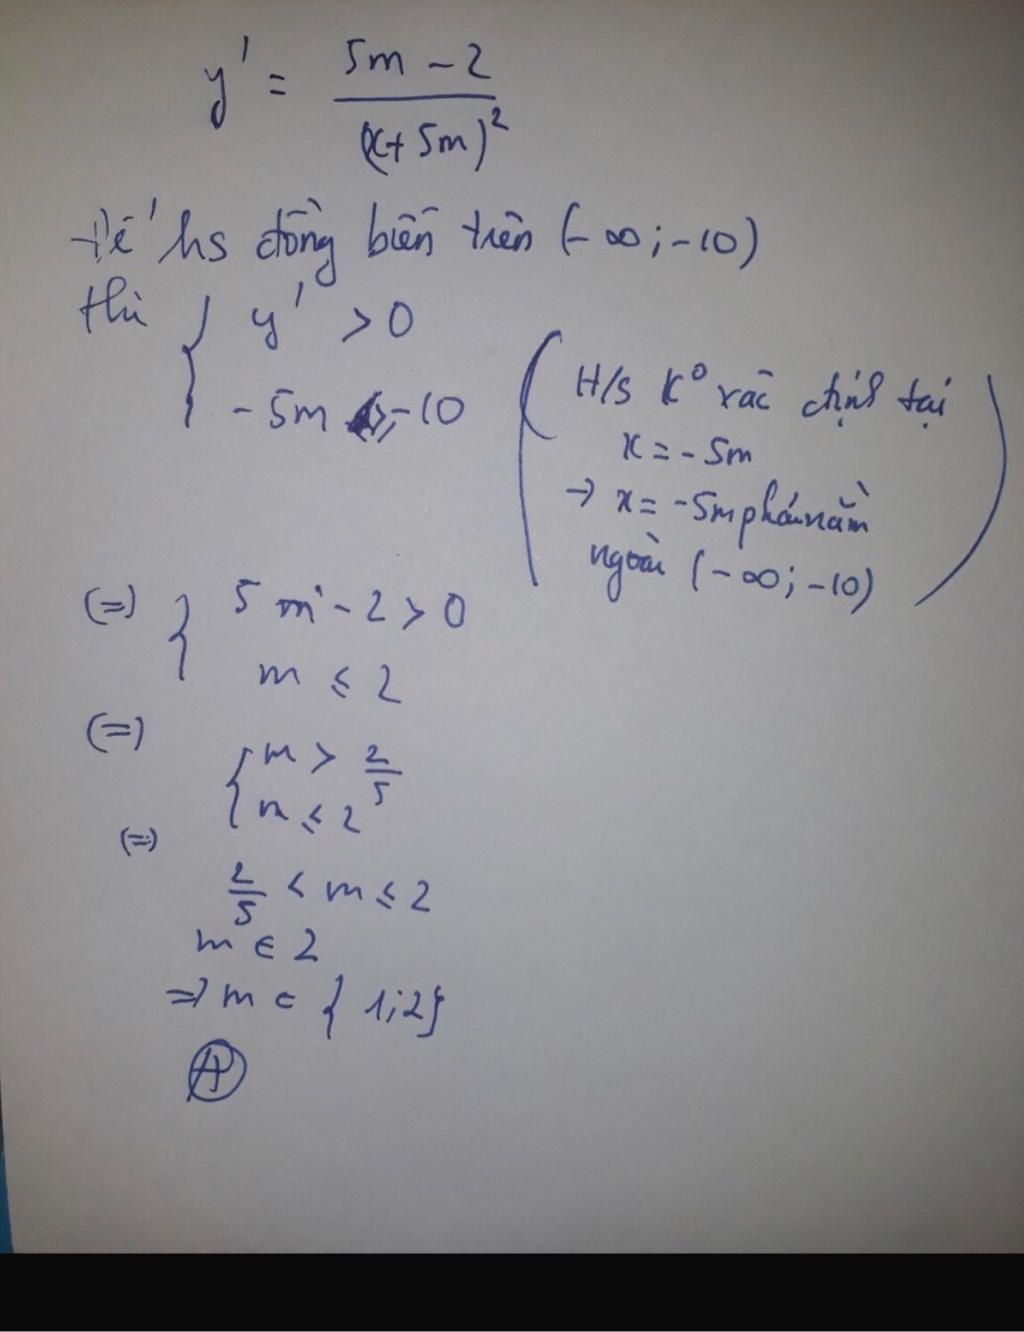 y' = \frac{5m - 2}{(x + 5m)^2}
Để hs đồng biến trên (-∞; -10)
thì { y' > 0
-5m ≥ -10
(H/s K⁰ xác định tại
x = -5m
→ x = -5m phải nằm
ngoài (-∞; -10))
(=) { 5m - 2 > 0
m ≤ 2
(=)
{ m > \frac{2}{5}
m ≤ 2
(=)
\frac{2}{5} < m ≤ 2
m ∈ Z
⇒ m ∈ {1; 2}
Ⓐ